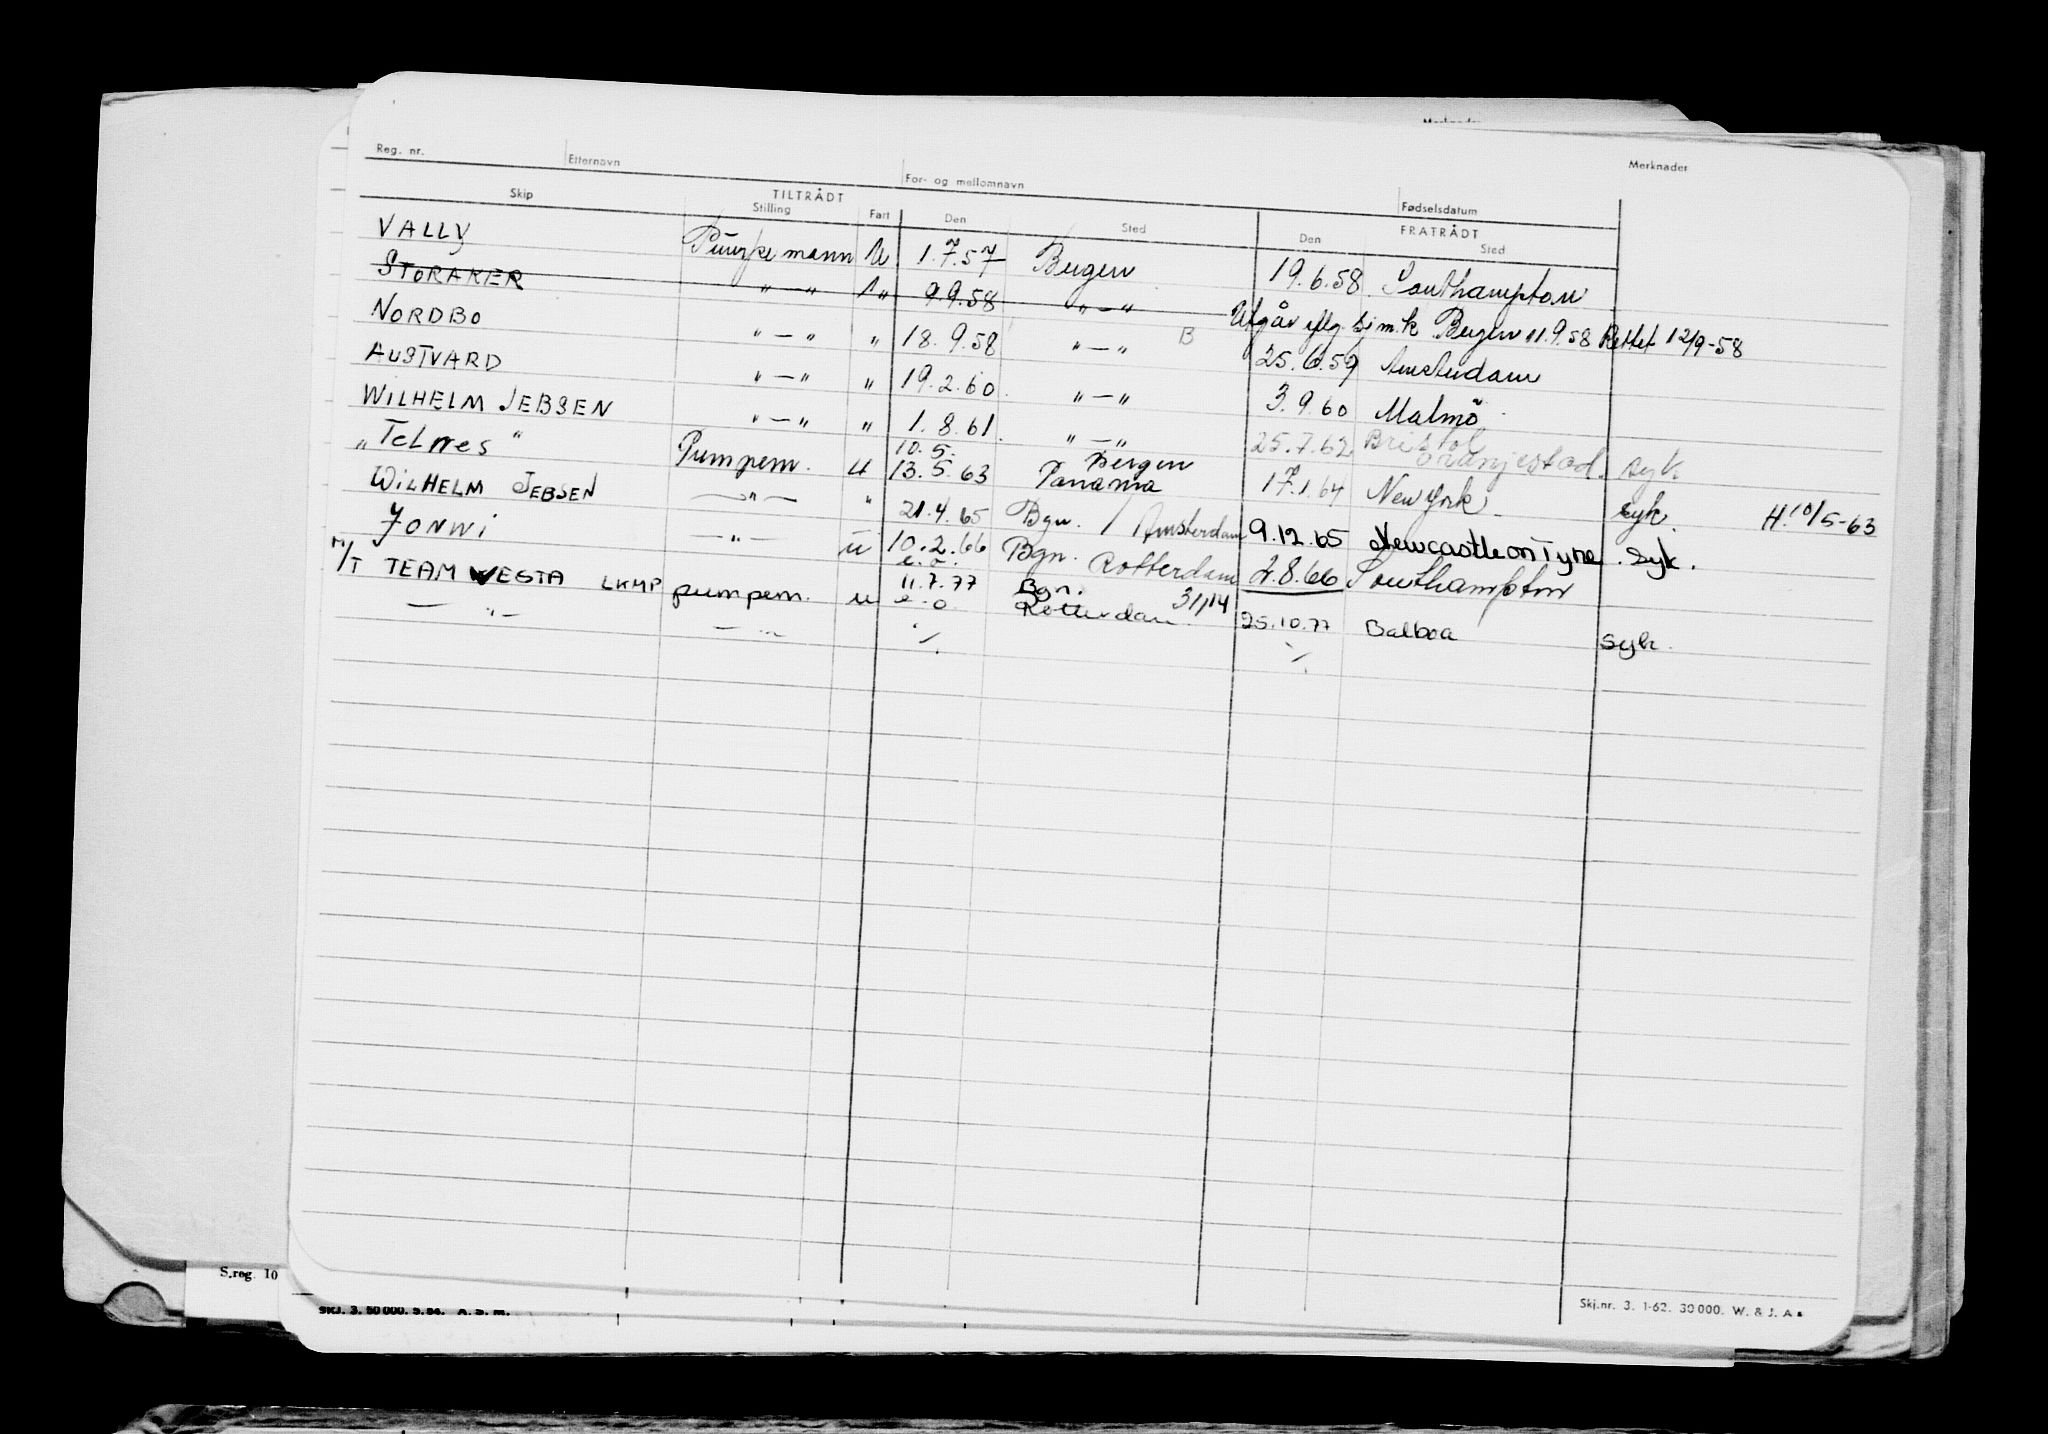 Merknader
Reg. nr. Etternavn For- og mellomnavn Fødselsdatum Merknader
TILTRÅDT FRATRÅDT
Skip Stilling Fart Den Sted Den Sted
VALLY Pumpemann U 1.7.57 Bergen 19.6.58 Southampton
STORAKER " — " " 9.9.58 " — " Utgår iflg. Bergen 11.9.58 Rettet 12/9-58
NORDBO " — " " 18.9.58 " — " B 25.6.59 Amsterdam
AUSTVARD " — " " 19.2.60 " — " 3.9.60 Malmö
WILHELM JEBSEN " — " " 1.8.61 " — " 25.7.62 Bristol
" TELNES " Pumpem. u 10.5. 13.5.63 Bergen Panama Oranjestad. syk
WILHELM JEBSEN — " — " 21.4.65 Bgn. / Amsterdam 17.1.64 New York syk. H. 10/5-63
JONWI — " — u 10.2.66 e.o. Bgn. Rotterdam 9.12.65 Newcastle on Tyne. syk.
M/T TEAM VESTA LKMP pumpem. u 11.7.77 e.o. Bgn. Rotterdam 31/14 2.8.66 Southampton
— " — — " — ·/. 25.10.77 Balboa syk.
·/.
S.reg. 10
SKJ. 3. 50 000. 9.54. A. S. m.
Skj.nr. 3. 1-62. 30 000. W. & J. A s